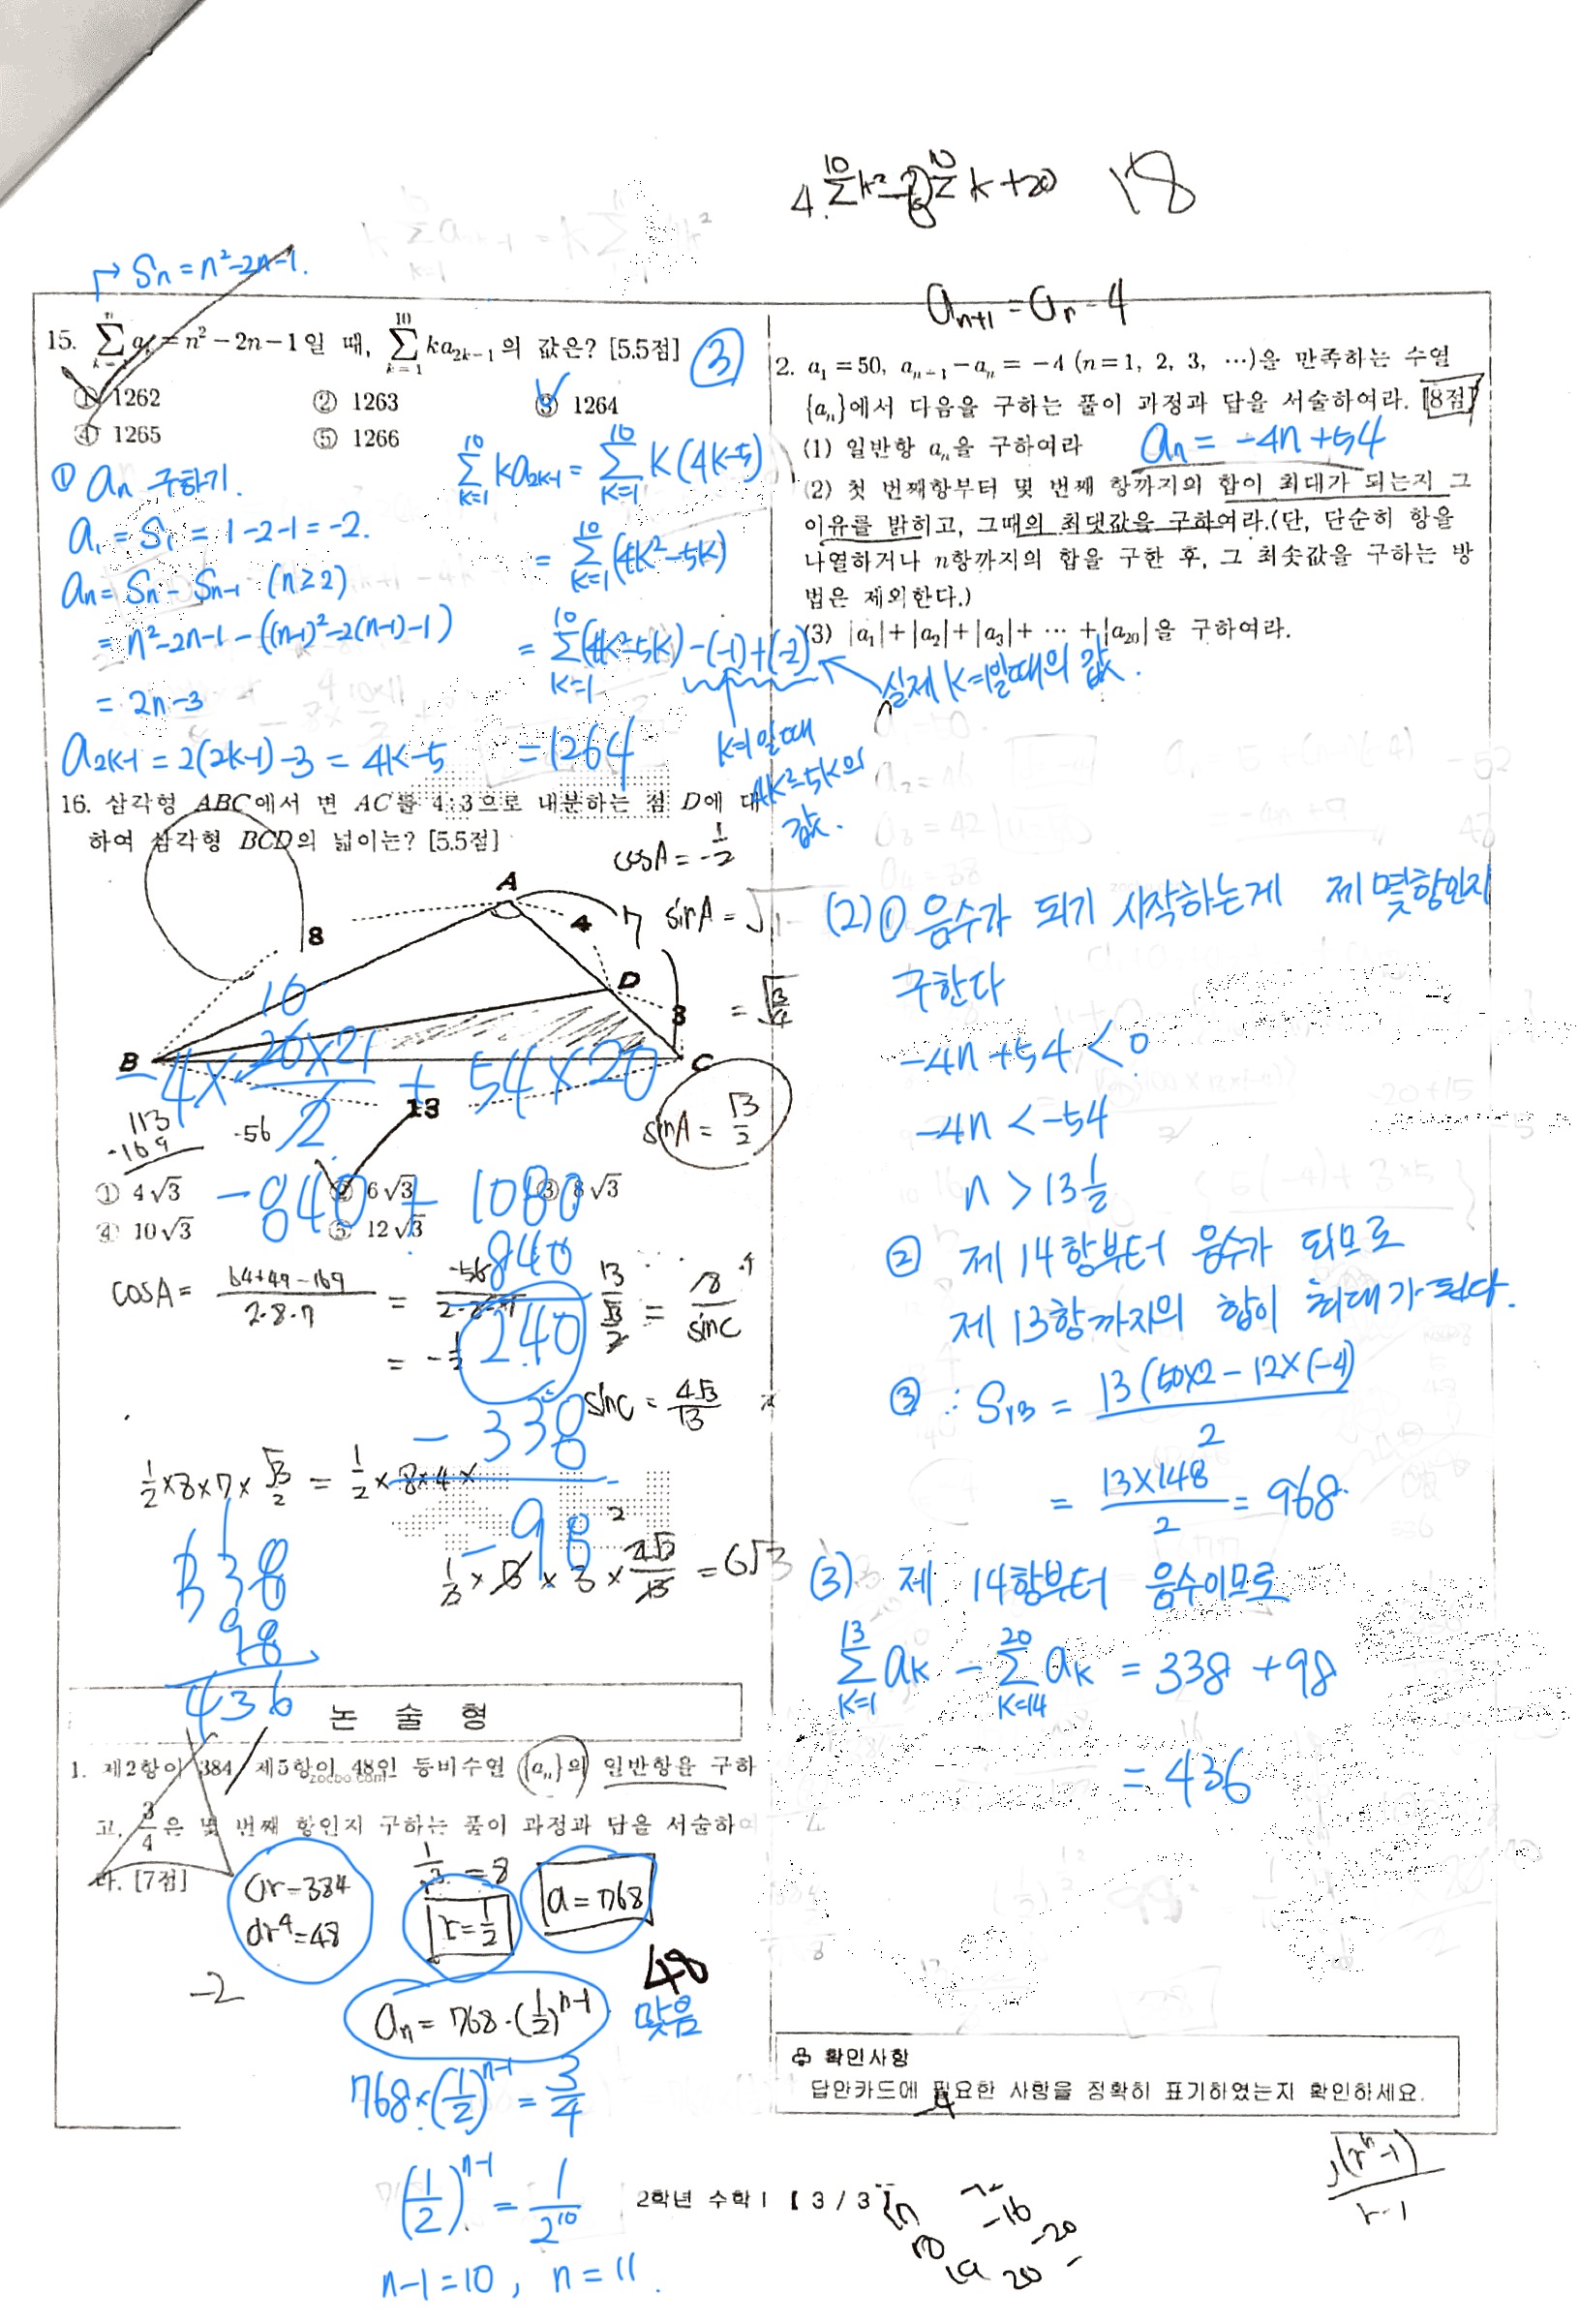 4·Σ(10)k²-8Σ(10)k+20
18
→ Sn = n²-2n-1.
15. Σ(k=1,n) aₖ = n²-2n-1일 때, Σ(k=1,10) ka₂ₖ₋₁의 값은? [5.5점]
③
① 1262 ② 1263 ③ 1264
④ 1265 ⑤ 1266
① an 구하기.
a₁ = S₁ = 1-2-1 = -2.
an = Sn - Sn-1 (n≥2)
= n²-2n-1-((n-1)²-2(n-1)-1)
= 2n-3
a2k-1 = 2(2k-1)-3 = 4k-5
Σ(k=1,10) ka2k-1 = Σ(k=1,10) k(4k-5)
= Σ(k=1,10) (4k²-5k)
= Σ(k=1,10) (4k²-5k)-(-1)+(-2)
실제 k=1일때의 값.
k=1일때
4k²-5k의
값.
=1264
16. 삼각형 ABC에서 변 AC를 4:3으로 내분하는 점 D에 대
하여 삼각형 BCD의 넓이는? [5.5점]
cosA = -1/2
A
8
4
7
sinA = √1-
D
10
3
= √3/4
B
C
13
-4× 20×21/2 + 54×20
113
-169
-56
sinA = √3/2
① 4√3 ② 6√3 ③ 8√3
④ 10√3 ⑤ 12√3
-840 + 1080
840
240
cosA = 64+49-169/2·8·7 = -56/2·8·7
= -1/2
13/(√3/2) = 8/sinC
sinC = 4√3/13
- 338
- 98
1/2×8×7×√3/2 = 1/2×8×4×
1/2×13×3×4√3/13 = 6√3
338
98
436
논 술 형
1. 제2항이 384, 제5항이 48인 등비수열 {aₙ}의 일반항을 구하
고, 3/4은 몇 번째 항인지 구하는 풀이 과정과 답을 서술하여
라. [7점]
zocbo.com
ar=384
ar⁴=48
1/r³ = 8
r = 1/2
a = 768
-2
an = 768·(1/2)ⁿ⁻¹
48
맞음
768×(1/2)ⁿ⁻¹ = 3/4
(1/2)ⁿ⁻¹ = 1/2¹⁰
n-1=10, n=11.
an+1 = an - 4
2. a₁=50, aₙ₊₁-aₙ=-4 (n=1, 2, 3, …)을 만족하는 수열
{aₙ}에서 다음을 구하는 풀이 과정과 답을 서술하여라. [8점]
(1) 일반항 aₙ을 구하여라
an = -4n+54
(2) 첫 번째항부터 몇 번째 항까지의 합이 최대가 되는지 그
이유를 밝히고, 그때의 최댓값을 구하여라.(단, 단순히 항을
나열하거나 n항까지의 합을 구한 후, 그 최솟값을 구하는 방
법은 제외한다.)
(3) |a₁|+|a₂|+|a₃|+ … +|a₂₀|을 구하여라.
(2) ① 음수가 되기 시작하는게 제 몇항인지
구한다
-4n+54 < 0
-4n < -54
n > 13 1/2
② 제 14항부터 음수가 되므로
제 13항까지의 합이 최대가 된다.
③ ∴ S13 = 13(50×2-12×(-4))/2
= 13×148/2 = 968.
(3) 제 14항부터 음수이므로
Σ(k=1,13) ak - Σ(k=14,20) ak = 338 + 98
= 436
확인사항
답안카드에 필요한 사항을 정확히 표기하였는지 확인하세요.
2학년 수학Ⅰ 【 3 / 3 】
(rⁿ-1)/r-1
-16
-20
19
20